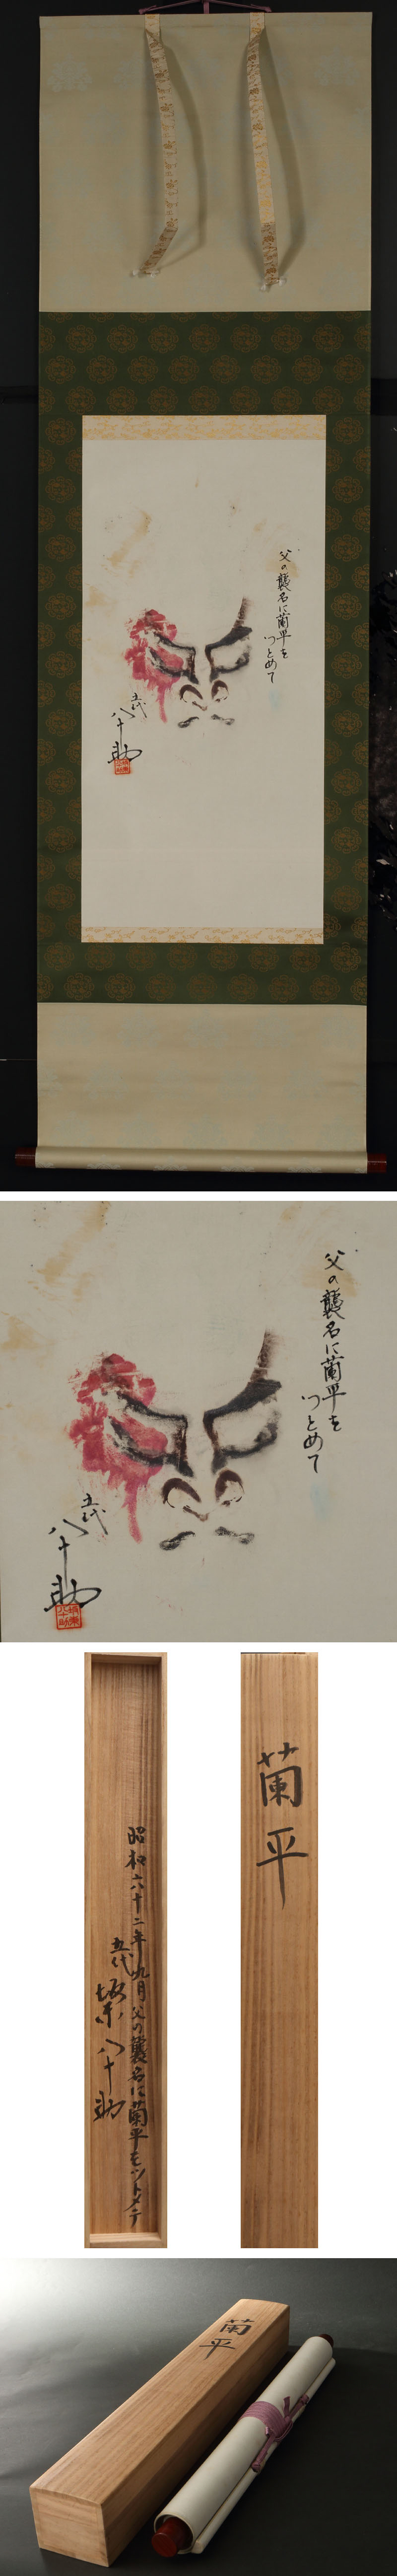 父の襲名に蘭平を
つとめて
五代
八十助
父の襲名に蘭平を
つとめて
五代
八十助
昭和六十二年九月父の襲名に蘭平をツトメテ
五代
坂東八十助
蘭平
蘭平